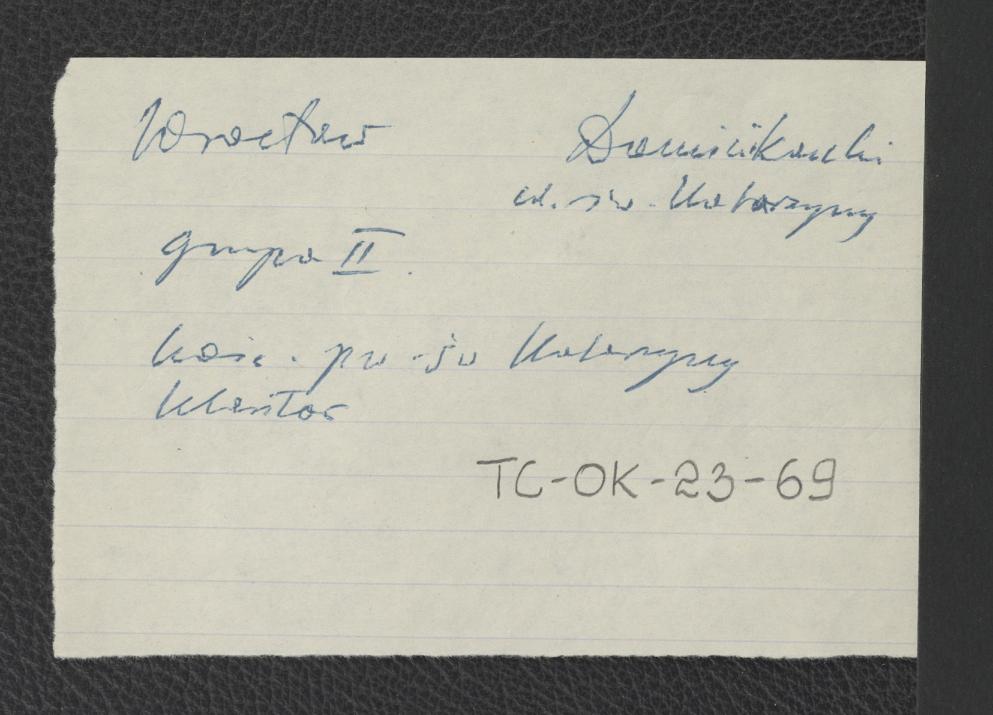 Wrocław
Dominikanki
ul. św. Katarzyny
grupa II.
kośc. pw. św Katarzyny
klasztor
TC-OK-23-69